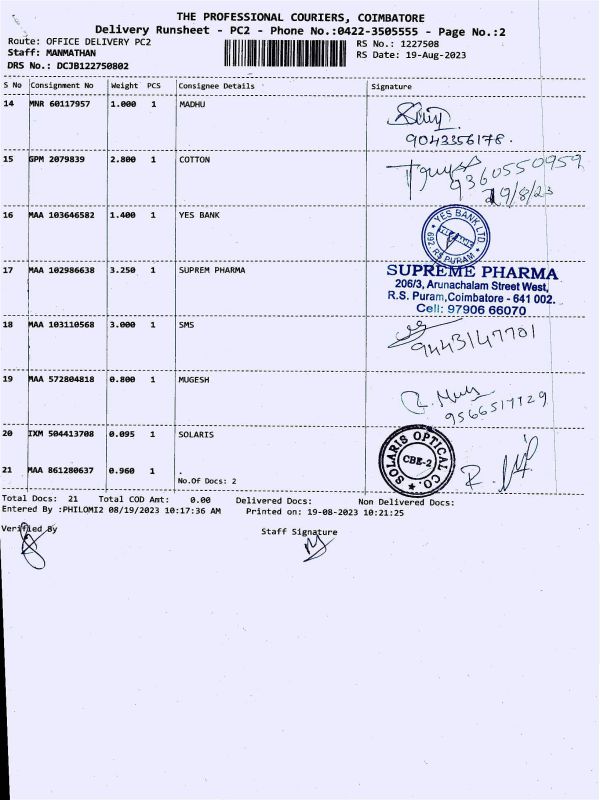 THE PROFESSIONAL COURIERS, COIMBATORE
Delivery Runsheet - PC2 - Phone No.:0422-3505555 - Page No.:2
Route: OFFICE DELIVERY PC2 RS No.: 1227508
Staff: MANMATHAN RS Date: 19-Aug-2023
DRS No.: DCJB122750802
S No Consignment No Weight PCS Consignee Details Signature
14 MNR 60117957 1.000 1 MADHU
9043356178.
15 GPM 2079839 2.800 1 COTTON
9360550959
19/8/23
16 MAA 103646582 1.400 1 YES BANK
YES BANK LTD.
692 R S PURAM
17 MAA 102986638 3.250 1 SUPREM PHARMA
SUPREME PHARMA
206/3, Arunachalam Street West,
R.S. Puram,Coimbatore - 641 002.
Cell: 97906 66070
18 MAA 103110568 3.000 1 SMS
9443147701
19 MAA 572804818 0.800 1 MUGESH
9566517129
20 IXM 504413708 0.095 1 SOLARIS
SOLARIS OPTICAL CO.
CBE-2
21 MAA 861280637 0.960 1 .
No.Of Docs: 2
Total Docs: 21 Total COD Amt: 0.00 Delivered Docs: Non Delivered Docs:
Entered By :PHILOMI2 08/19/2023 10:17:36 AM Printed on: 19-08-2023 10:21:25
Verified By Staff Signature